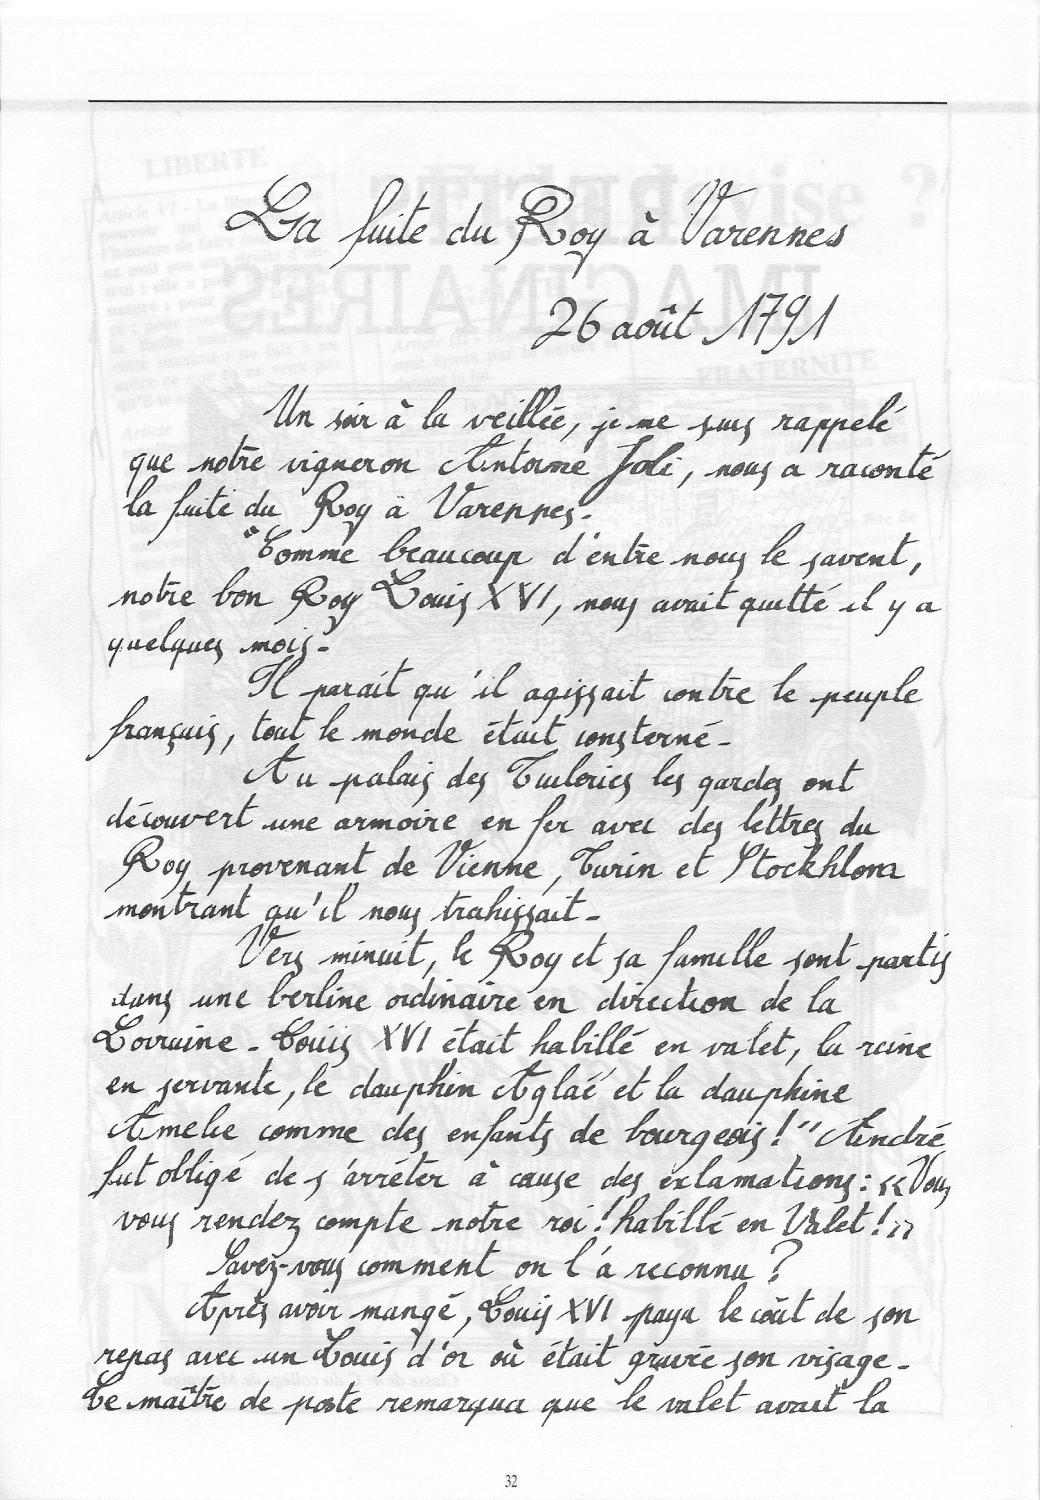 La fuite du Roy à Varennes
26 août 1791
Un soir à la veillée, je me suis rappelé
que notre vigneron Antoine Joli, nous a raconté
la fuite du Roy à Varennes.
"Comme beaucoup d'entre nous le savent,
notre bon Roy Louis XVI, nous avait quitté il y a
quelques mois.
Il parait qu'il agissait contre le peuple
français, tout le monde était consterné.
Au palais des Tuileries les gardes ont
découvert une armoire en fer avec des lettres du
Roy provenant de Vienne, Turin et Stockhlom
montrant qu'il nous trahissait.
Vers minuit, le Roy et sa famille sont partis
dans une berline ordinaire en direction de la
Lorraine. Louis XVI était habillé en valet, la reine
en servante, le dauphin Aglaé et la dauphine
Amelie comme des enfants de bourgeois!" André
fut obligé de s'arrêter à cause des exclamations: «Vous
vous rendez compte notre roi! habillé en Valet!»
Savez-vous comment on l'a reconnu?
Après avoir mangé, Louis XVI paya le coût de son
repas avec un Louis d'or où était gravée son visage.
Le maître de poste remarqua que le valet avait la
32